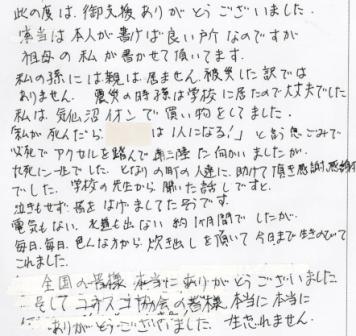 此の度は、御支援ありがとうございました。
本当は本人が書けば良い所なのですが
祖母の私が書かせて頂いてます。
私の孫には親は居ません。被災した訳では
ありません。震災の時孫は学校に居たので大丈夫でした
私は、気仙沼イオンで買い物をしてました。
「私が死んだら は1人になる!」と言う思いこみで
必死でアクセルを踏んで南三陸に向かいましたが、
九死に一生でした。となりの町の人達に、助けて頂き感謝、感謝
でした。学校の先生から聞いた話しですと、
泣きもせず
電気もない、水道も出ない約1ヶ月間でしたが、
毎日、毎日、色んな方から炊き出しを頂いて今日まで生きのびて
これました。
全国の皆様本当にありがとうございました
そしてユネスコ協会の皆様、本当に本当に
ありがとうございました。一生忘れません。